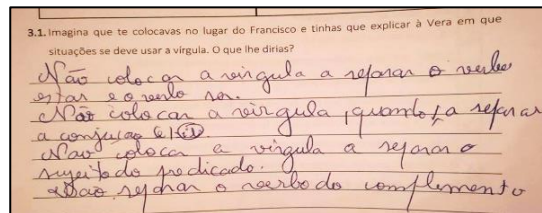 3.1. Imagina que te colocavas no lugar do Francisco e tinhas que explicar à Vera em que
situações se deve usar a vírgula. O que lhe dirias?
Não colocar a vírgula a separar o verbo
estar e o verbo ser.
Não colocar a vírgula, quando a separar
a conjução e
Nao coloca a vírgula a separar o
sujeito do predicado.
Não separar o verbo do complemento